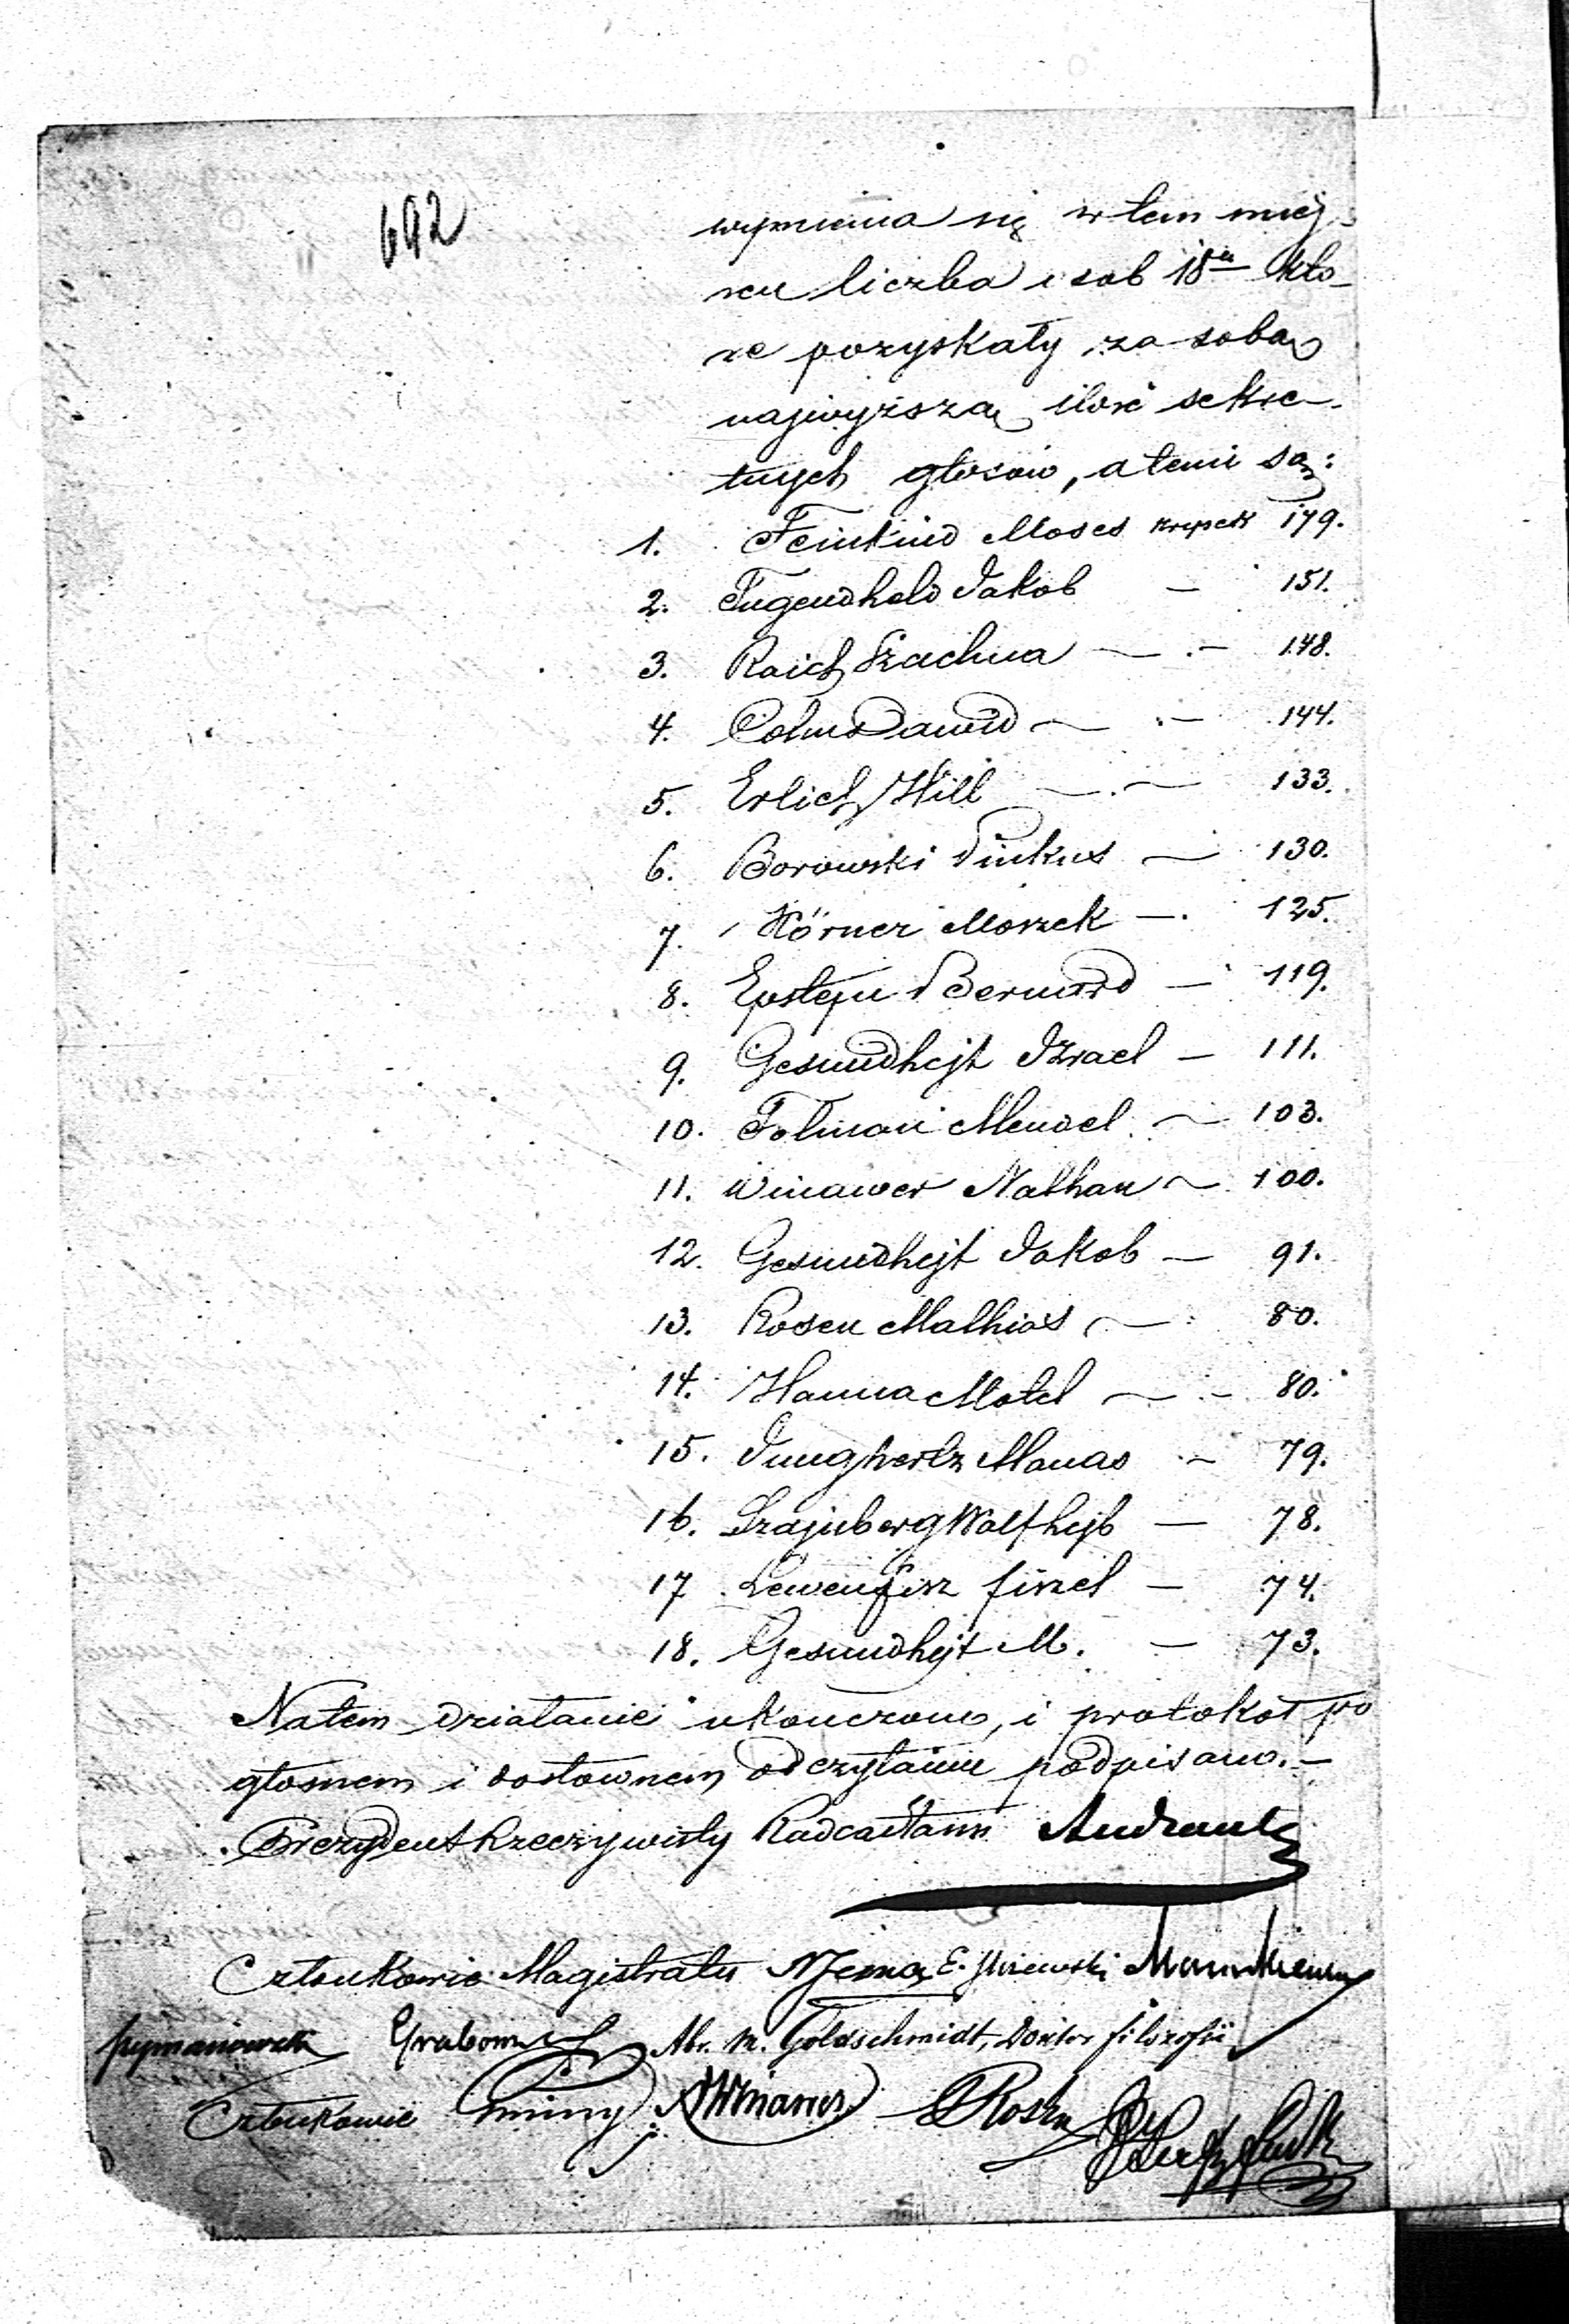 692
wymienia się w tem miej-
scu liczba osób 18tu któ-
re pozyskały za sobą
najwyższą ilość sekre-
tnych głosów, a temi są:
1. Feinkind Moses kresek 179.
2. Tugendhold Jakob — 151.
3. Raich Szachna — — 148.
4. Cohn Dawid — — 144.
5. Erlich Hill — — 133.
6. Borowski Pinkus — 130.
7. Körner Moszek — 125.
8. Epstejn Bernard — 119.
9. Gesundhejt Izrael — 111.
10. Folman Mendel — 103.
11. Winawer Nathan — 100.
12. Gesundhejt Jakob — 91.
13. Rosen Mathias — 80.
14. Hanna Motel — — 80.
15. Junghertz Manas — 79.
16. Szajnberg Wolf hejb — 78.
17. Lewenfisz fiszel — 74.
18. Gesundhejt M. — 73.
Na tem działanie ukończono, i protokół po
głosnem i dosłownem odczytaniu podpisano.—
Prezydent Rzeczywisty Radca Stanu Andrault
Członkowie Magistratu
Abr. M. Goldschmidt, Doktor filozofii
Członkowie Gminy: Winawer Rosen